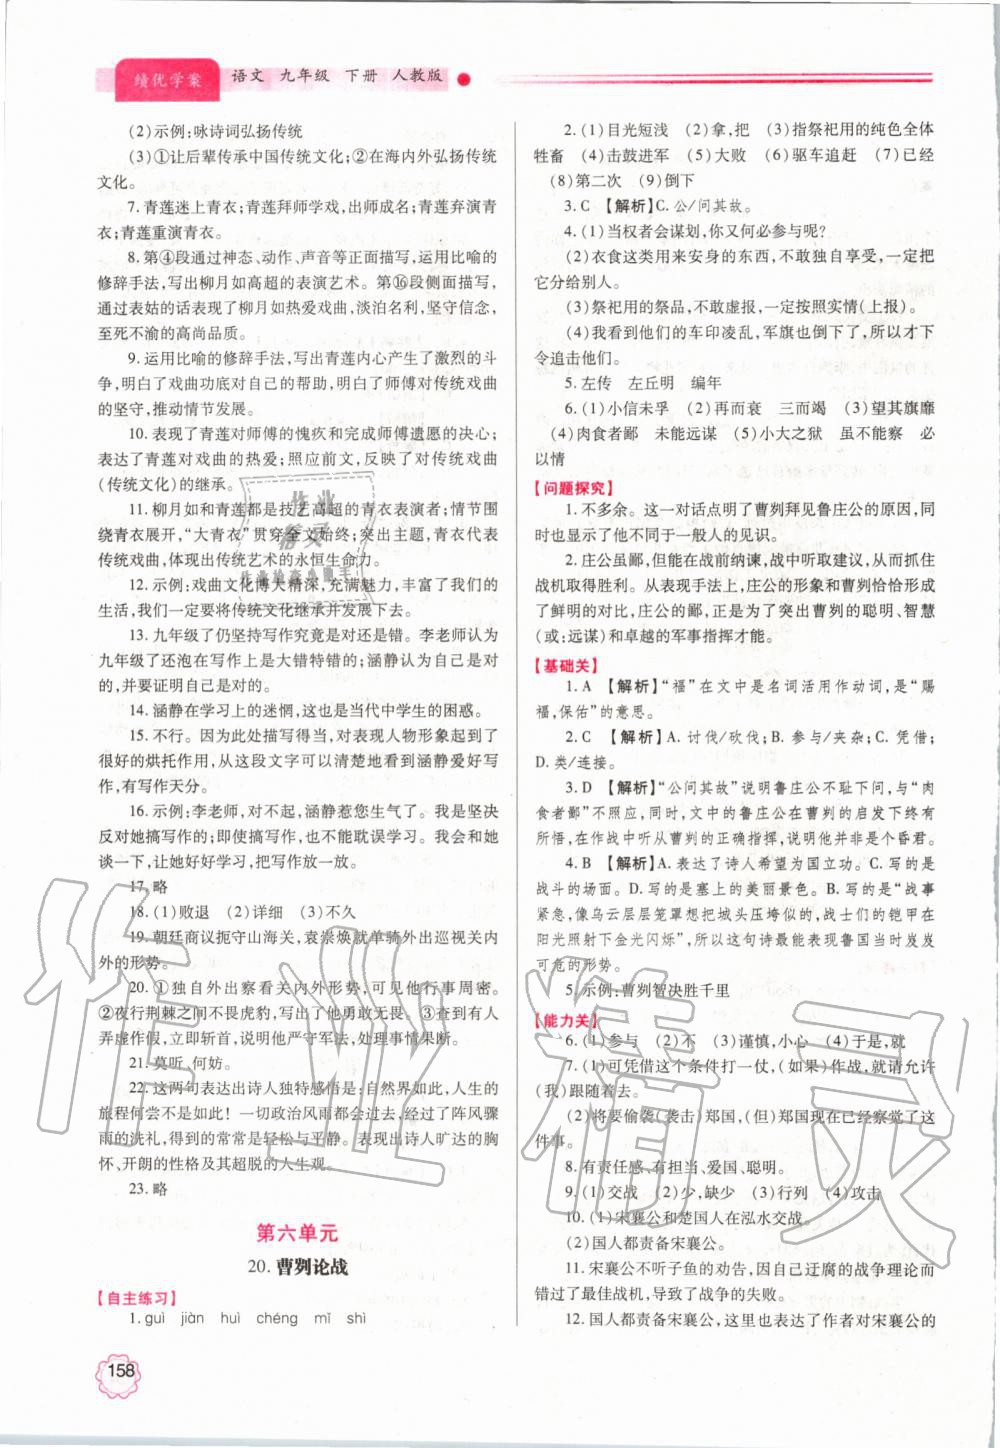 绩优学案 语文 九年级 下册 人教版
(2)示例:咏诗词弘扬传统
(3)①让后辈传承中国传统文化;②在海内外弘扬传统
文化。
7. 青莲迷上青衣;青莲拜师学戏,出师成名;青莲弃演青
衣;青莲重演青衣。
8. 第④段通过神态、动作、声音等正面描写,运用比喻的
修辞手法,写出柳月如高超的表演艺术。第⑯段侧面描写,
通过表姑的话表现了柳月如热爱戏曲,淡泊名利,坚守信念,
至死不渝的高尚品质。
9. 运用比喻的修辞手法,写出青莲内心产生了激烈的斗
争,明白了戏曲功底对自己的帮助,明白了师傅对传统戏曲
的坚守,推动情节发展。
10. 表现了青莲对师傅的愧疚和完成师傅遗愿的决心;
表达了青莲对戏曲的热爱;照应前文,反映了对传统戏曲
(传统文化)的继承。
11. 柳月如和青莲都是技艺高超的青衣表演者;情节围
绕青衣展开,“大青衣”贯穿全文始终;突出主题,青衣代表
传统戏曲,体现出传统艺术的永恒生命力。
12. 示例:戏曲文化博大精深,充满魅力,丰富了我们的
生活,我们一定要将传统文化继承并发展下去。
13. 九年级了仍坚持写作究竟是对还是错。李老师认为
九年级了还泡在写作上是大错特错的;涵静认为自己是对的,
并要证明自己是对的。
14. 涵静在学习上的迷惘,这也是当代中学生的困惑。
15. 不行。因为此处描写得当,对表现人物形象起到了
很好的烘托作用,从这段文字可以清楚地看到涵静爱好写
作,有写作天分。
16. 示例:李老师,对不起,涵静惹您生气了。我是坚决
反对她搞写作的;即使搞写作,也不能耽误学习。我会和她
谈一下,让她好好学习,把写作放一放。
17. 略
18. (1)败退 (2)详细 (3)不久
19. 朝廷商议扼守山海关,袁崇焕就单骑外出巡视关内
外的形势。
20. ①独自外出察看关内外形势,可见他行事周密。
②夜行荆棘之间不畏虎豹,写出了他勇敢无畏。③查到有人
弄虚作假,立即斩首,写出他严守军法,处理事情果断。
21. 莫听,何妨。
22. 这两句表达出诗人独特感悟是:从自然来看,人生的
旅程何尝不是如此呢!一切政治风雨都会过去,经过了阵风骤
雨的洗礼,得到的常常是轻松与平静。表现出诗人旷达的胸
怀、开朗的性格及其超脱的人生观。
23. 略
第六单元
20. 曹刿论战
【自主练习】
1. guì jiàn huì chéng mǐ shì
2. (1)目光短浅 (2)拿,把 (3)指祭祀用的纯色全体
牲畜 (4)击鼓进军 (5)大败 (6)驱车追赶 (7)已经
(8)第二次 (9)倒下
3. C 【解析】C. 公/问其故。
4. (1)当权者会谋划,你又何必参与呢?
(2)衣食这类用来安身的东西,不敢独自享受,一定把
它分给别人。
(3)祭祀用的祭品,不敢虚报,一定按照实情(上报)。
(4)我看到他们的车印凌乱,军旗也倒下了,所以才下
令追击他们。
5. 左传 左丘明 编年
6. (1)小信未孚 (2)再而衰 三而竭 (3)望其旗靡
(4)肉食者鄙 未能远谋 (5)小大之狱 虽不能察 必
以情
【问题探究】
1. 不多余。这一对话点明了曹刿拜见鲁庄公的原因,同
时也显示出了他不同于一般人的见识。
2. 庄公虽鄙,但能在战前纳谏,战中听取建议,从而抓住
战机取得胜利。从表现手法上,庄公的形象和曹刿恰恰形成
了鲜明的对比,庄公的鄙,正是为了突出曹刿的聪明、智慧
(或:远谋)和卓越的军事指挥才能。
【基础关】
1. A 【解析】“福”在文中是名词活用作动词,是“赐
福,保佑”的意思。
2. C 【解析】A. 讨伐/砍伐;B. 参与/夹杂;C. 凭借;
D. 类/连接。
3. D 【解析】“公问其故”说明鲁庄公不耻下问,与“肉
食者鄙”不照应,同时,文中的鲁庄公在曹刿的启发下终有
所悟,在作战中听从曹刿的正确指挥,说明他并非是个昏君。
4. B 【解析】A. 表达了诗人希望为国立功。C. 写的是
战斗的场面。D. 写的是塞上的美丽景色。B. 写的是“战事
紧急,像乌云层层笼罩想把城头压垮似的,战士们的铠甲在
阳光照射下金光闪烁”,所以这句诗最能表现鲁国当时岌岌
可危的形势。
5. 示例:曹刿智决胜千里
【能力关】
6. (1)参与 (2)不 (3)谨慎,小心 (4)于是,就
7. (1)可凭借这个条件打一仗,(如果)作战,就请允许
(我)跟随着去。
(2)将要偷袭(袭击)郑国,(但)郑国现在已经察觉了这
件事。
8. 有责任感、有担当、爱国、聪明。
9. (1)交战 (2)少,缺少 (3)行列 (4)攻击
10. (1)宋襄公和楚国人在泓水交战。
(2)国人都责备宋襄公。
11. 宋襄公不听子鱼的劝告,因迂腐的战争理论而
错过了最佳战机,导致了战争的失败。
12. 国人都责备宋襄公,这里也表达了作者对宋襄公的
158
作业精灵